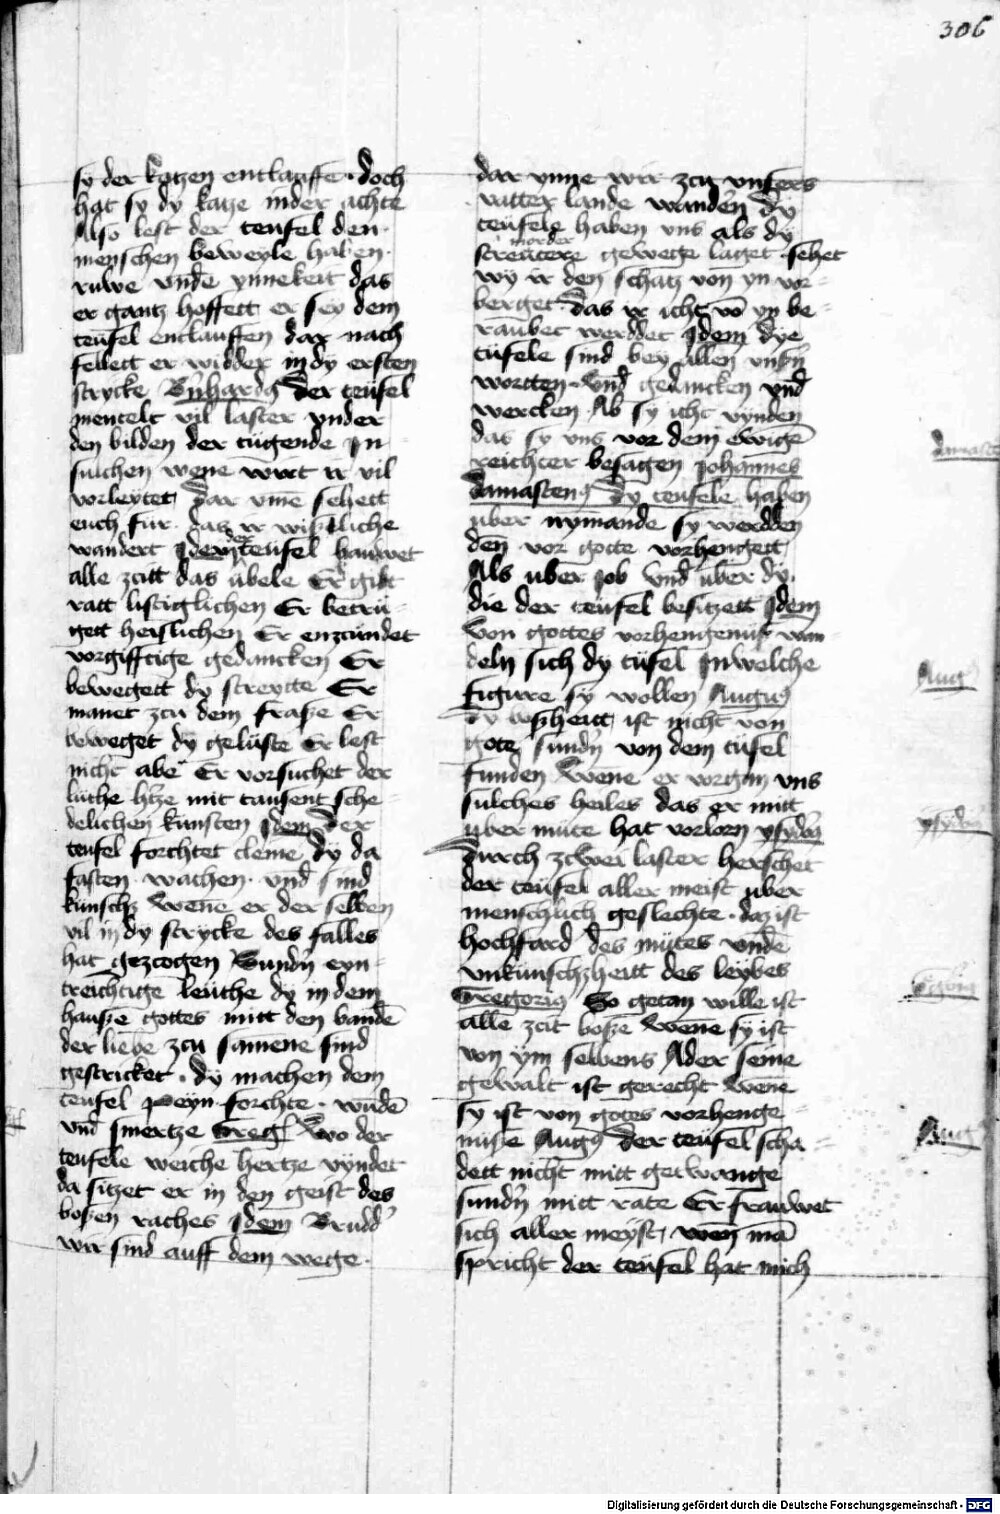 306
sy der katzen entlauffe · doch
hat sy dy katze inder achte
Also lest der teufel den
menschen beweyle haben ·
ruwe vnde ynnekeit das
er gantz hoffett er sey dem
teufel entlauffen dar nach
fellett er widder in dy ersten
strycke Bn̄hardꝰ Der teufel
mentelt vil laster vnder
den bilden der tügende In
sulchen wene wirt ir vil
vorleytet Dar vme sehett
euch fur · das ir wißliche
wandert Idem der teufel bauwet
alle zcitt das übele Er gibt
ratt listiglichen Er betrü-
gett heislichen Er enzcundet
vorgifftige gedancken Er
bewegett dy streytte Er
manet zcu dem fraße Er
beweget dy gelüste Er lest
nicht abe Er vorsuchet der
lüthe htze mit tausent sche-
delichen kunsten Idem Der
teufel forchtet cleine dy da
fasten · wachen · vnd sind
kunschz wene er der selben
vil in dy strycke des falles
hat gezcogen Sundn̄ eyn-
treichtige leüthe dy in dem
haußē gottes mitt den bandē
der liebe zcu samene sind
gestricket · dy machen dem
teufel peyn forchte · wūdē
vnd smertze Greg Wo der
teufele weiche hertze vyndet
da sitzet er in den geist des
boßen raches Idem Brudd'
wir sind auff dem wege ·
dar ynne wir zcu vnsers
vatter lande wanden Dy
teüfele haben vns als dy
morder
streütere gewege laget · sehet
wy ir den schatz von yn vor-
berget Das ir icht vō yn be-
raubet werddet Idem Dye
tüfele sind bey allen vnsn̄
wortten · vnd gedancken vnd
wercken Ab sy icht vynden
das sy vns vor dem ewigē
reichter besagen Johannes
Damastenꝰ Dy teufele haben
uber nymande sy werdden
den vor gotte vorhengett
Als uber Job vnd uber dy
die der teufel besitzett Idem
Von gottes vorhengenuß wan-
deln sich dy tüfel In welche
figure sy wollen Augus
Dy boßheitt ist nicht von
gote sundn̄ von dem tüfel
funden Wene er vorgan vns
sulches heiles das er mitt
uber müte hat vorlorn ysydoꝰ
Durch zcwei laster herschet
der teüfel aller meist uber
menschlich geslechte · daz ist
hochfard des mütes vnde
vnkunschzheitt des leybes
Gregoriꝰ So getan wille ist
alle zcit boße Wene sy ist
von ym selbens Ader seine
gewalt ist gerecht Wene
sy ist von gotes vorhenge-
niße Augꝰ Der teüfel scha-
dett nicht mitt getwange
sundn̄ mitt rate Er frauwet
sich aller meyst wen mā
spricht der teufel hat mich
Augꝰ
ysydoꝰ
Augꝰ
Digitalisierung gefördert durch die Deutsche Forschungsgemeinschaft - DFG